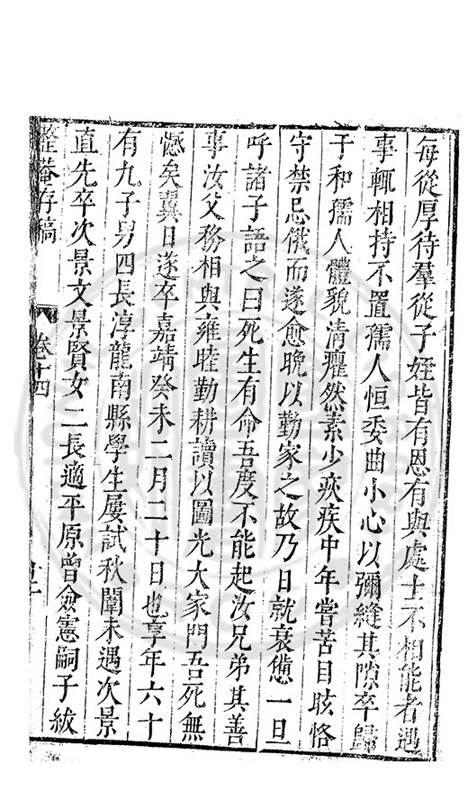 每從厚待羣從子姪皆有恩有與處士不相能者遇
事輒相持不置孺人恒委曲小心以彌縫其隙卒歸
于和孺人體貌清癯然素少疢疾中年嘗苦目眩恪
守禁忌俄而遂愈晚以勤家之故乃日就衰憊一旦
呼諸子語之曰死生有命吾度不能起汝兄弟其善
事汝父務相與雍睦勤耕讀以圖光大家門吾死無
憾矣翼日遂卒嘉靖癸未二月二十日也享年六十
有九子男四長淳龍南縣學生屢試秋闈未遇次景
直先卒次景文景賢女二長適平原曾僉憲嗣子紱
整菴存稿 卷十四